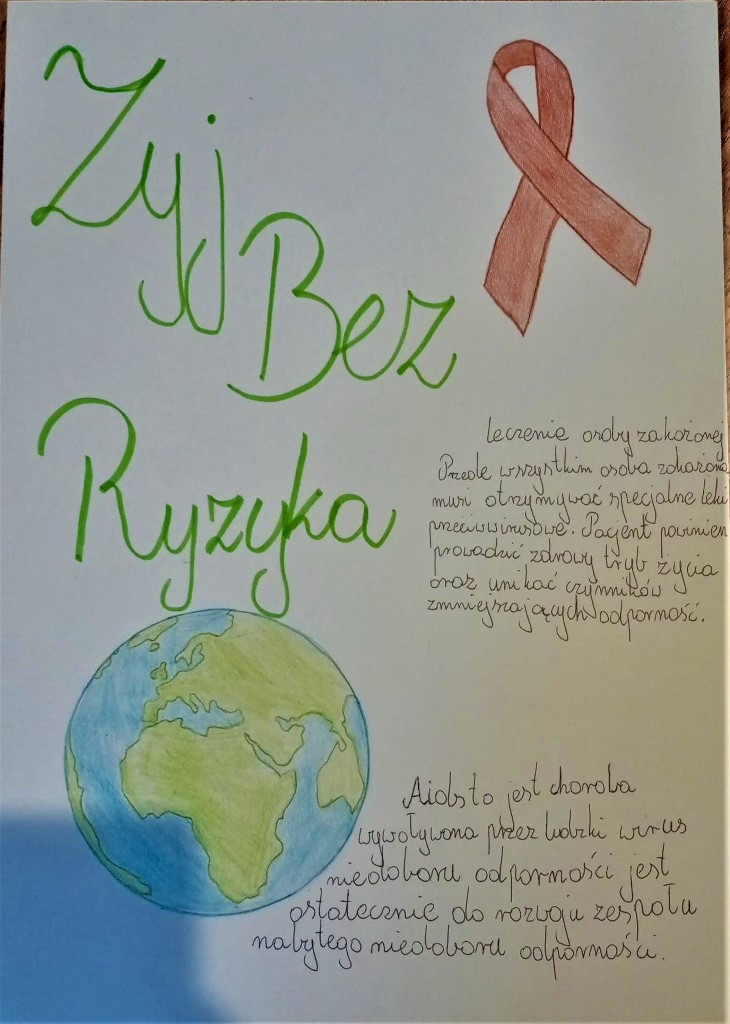 Żyj
Bez
Ryzyka
Leczenie osoby zakożonej
Przede wszystkim osoba zakażona
musi otrzymywać specjalne leki
przeciwwirusowe. Pacjent powinien
prowadzić zdrowy tryb życia
oraz unikać czynników
zmniejszających odporność.
Aids to jest choroba
wywoływana przez ludzki wirus
niedoboru odporności jest
ostatecznie do rozwoju zespołu
nabytego niedoboru odporności.